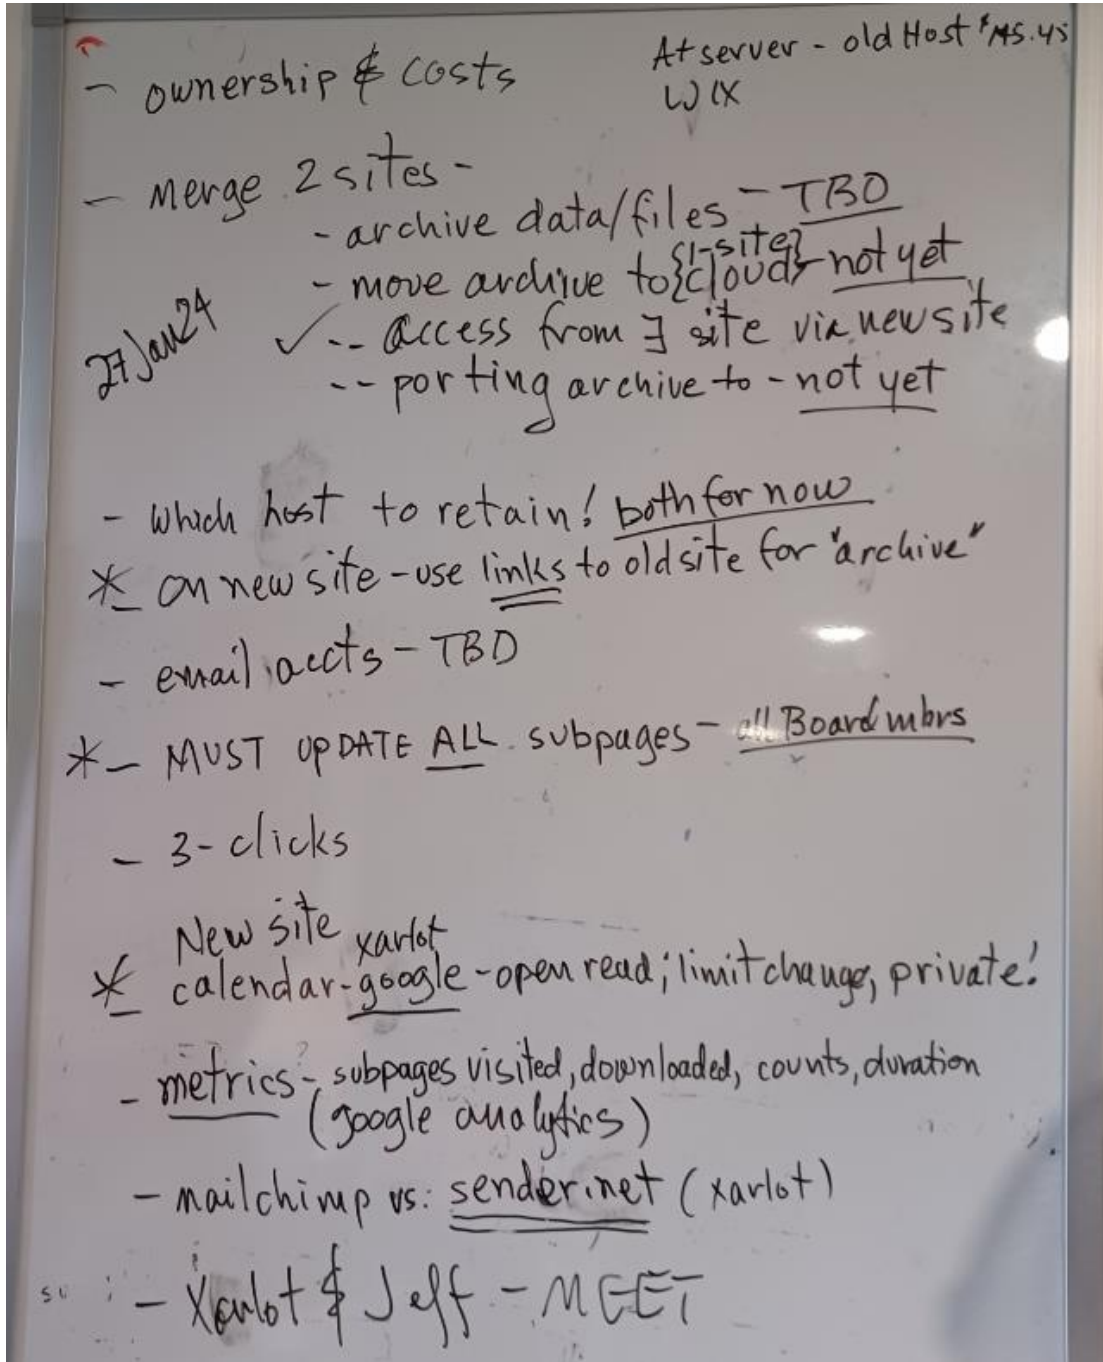 - ownership & costs
At server - old Host
WIX
- merge 2 sites -
- archive data/files - TBD
- move archive to {1-site} {cloud} - not yet
27 Jan 24
✓ -- access from ∃ site via new site
-- porting archive to - not yet
- which host to retain! both for now
*- on new site - use links to old site for "archive"
- email accts - TBD
*- MUST UPDATE ALL subpages - all Board mbrs
- 3-clicks
New site xarlot
*- calendar - google - open read; limit change, private!
- metrics - subpages visited, downloaded, counts, duration
(google analytics)
- mailchimp vs: sender.net (xarlot)
- Xarlot & Jeff - MEET